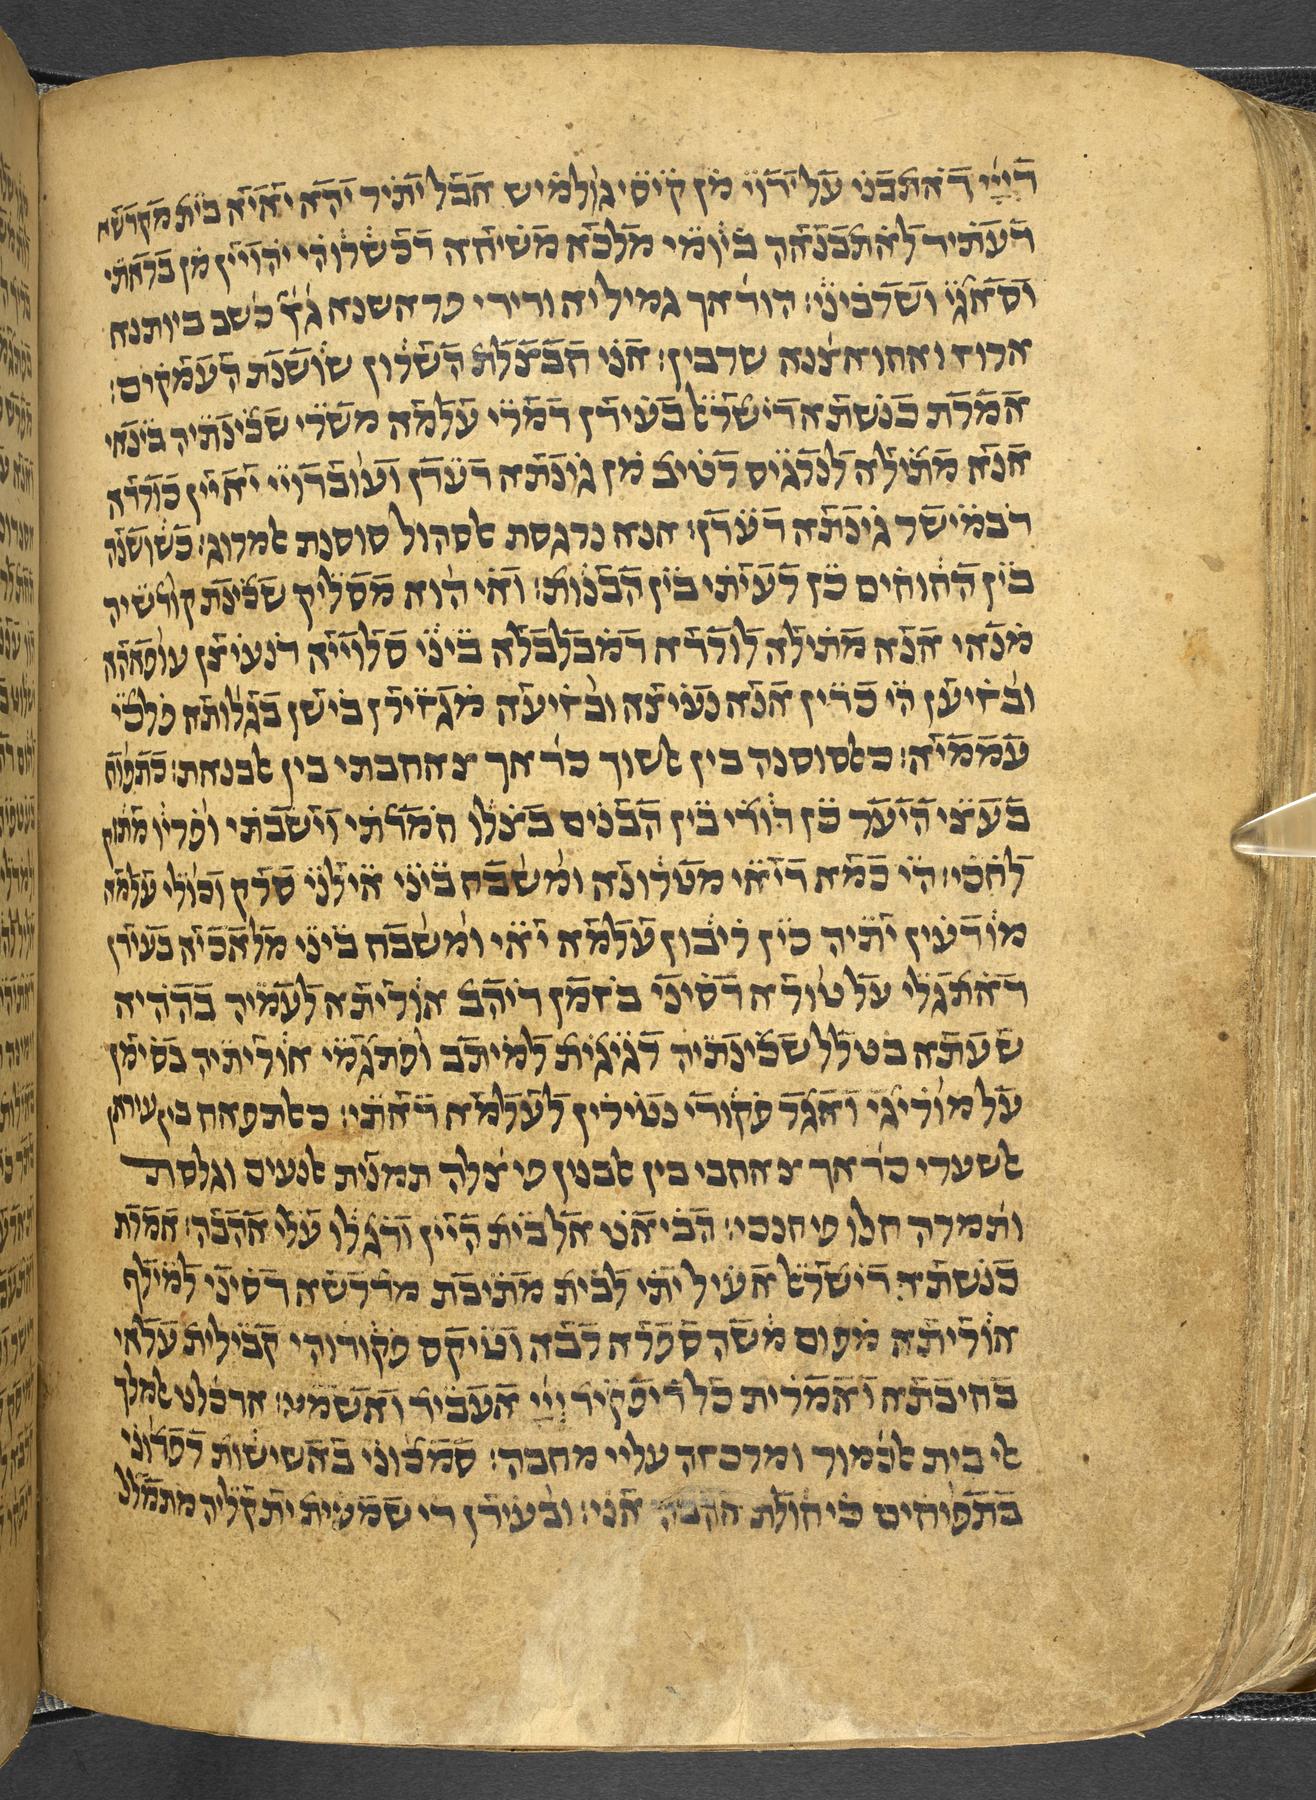 דייי דאתבני על ידוי מן קיסי גולמיש אבל יתיר יהא יאיא בית מקדשא
דעתיד לאתבנאה ביומי מלכא משיחא דכשרוהי יהויין מן בראתי
וסאגי ושרביני׃ הודאך גמיליא ורירי פראשנא גץ כשב ביותנא
ארוז ואחואצנא שרבין׃ אני חבצלת השרון שושנת העמקים׃
אמרת כנשתא דישראל בעידן דמרי עלמא משרי שכינתיה בינאי
אנא מתילא לנרגיס רטיב מן גינתא דעדן ועובדויי יאיין כורדא
דבמישר גינתא דעדן׃ אנא נרגסת אלסהול סוסנת אלמרוג׃ כשושנה
בין החוחים כן רעיתי בין הבנות׃ ואי הוא מסליק שכינת קודשיה
מנאי אנא מתילא לורדא דמבלבלא ביני סלוייא דנעיצן עופאהא
ובזיען הי כדין אנא נעיצא ובזיעא מגזירן בישן בגלותא פלכי
עממיא׃ כאלסוסנה בין אלשוך כדאך צאחבתי בין אלבנאת׃ כתפוח
בעצי היער כן דודי בין הבנים בצלו חמדתי וישבתי ופריו מתוק
לחכי׃ הי כמא דיאי מטרונא ומשבח ביני אילני סרק וכולי עלמא
מודעין יתיה כין ריבון עלמא יאי ומשבח ביני מלאכיא בעידן
דאתגלי על טורא דסיני בזמן דיהב אוריתא לעמיה בההיא
שעתא בטלל שכינתיה רגיגית למיתב ופתגמי אוריתיה בסימן
על מוריגי ואגר פקודי נטירין לעלמא דאתי׃ כאלתפאח בין עידאן
אלשערי כדאך צאחבי בין אלבנון פי צלה תמנית אנעים וגלסת
ותמרה חלו פי חנכי׃ הביאני אל בית היין ודגלו עלי אהבה׃ אמרת
כנשתא דישראל אעיל יתי לבית מתיבת מדרשא דסיני למילף
אוריתא מפום משה ספרא רבא וטיקס פקודוהי קבילית עלאי
בחיבתא ואמרית כל דיפקיד ייי אעביד ואשמע׃ אדכלנו אלמלך
אלי בית אלכמור ומרכזה עליי מחבה׃ סמכוני באשישות רפדוני
בתפוחים כי חולת אהבה אני׃ ובעידן די שמעית ית קליה מתמלל